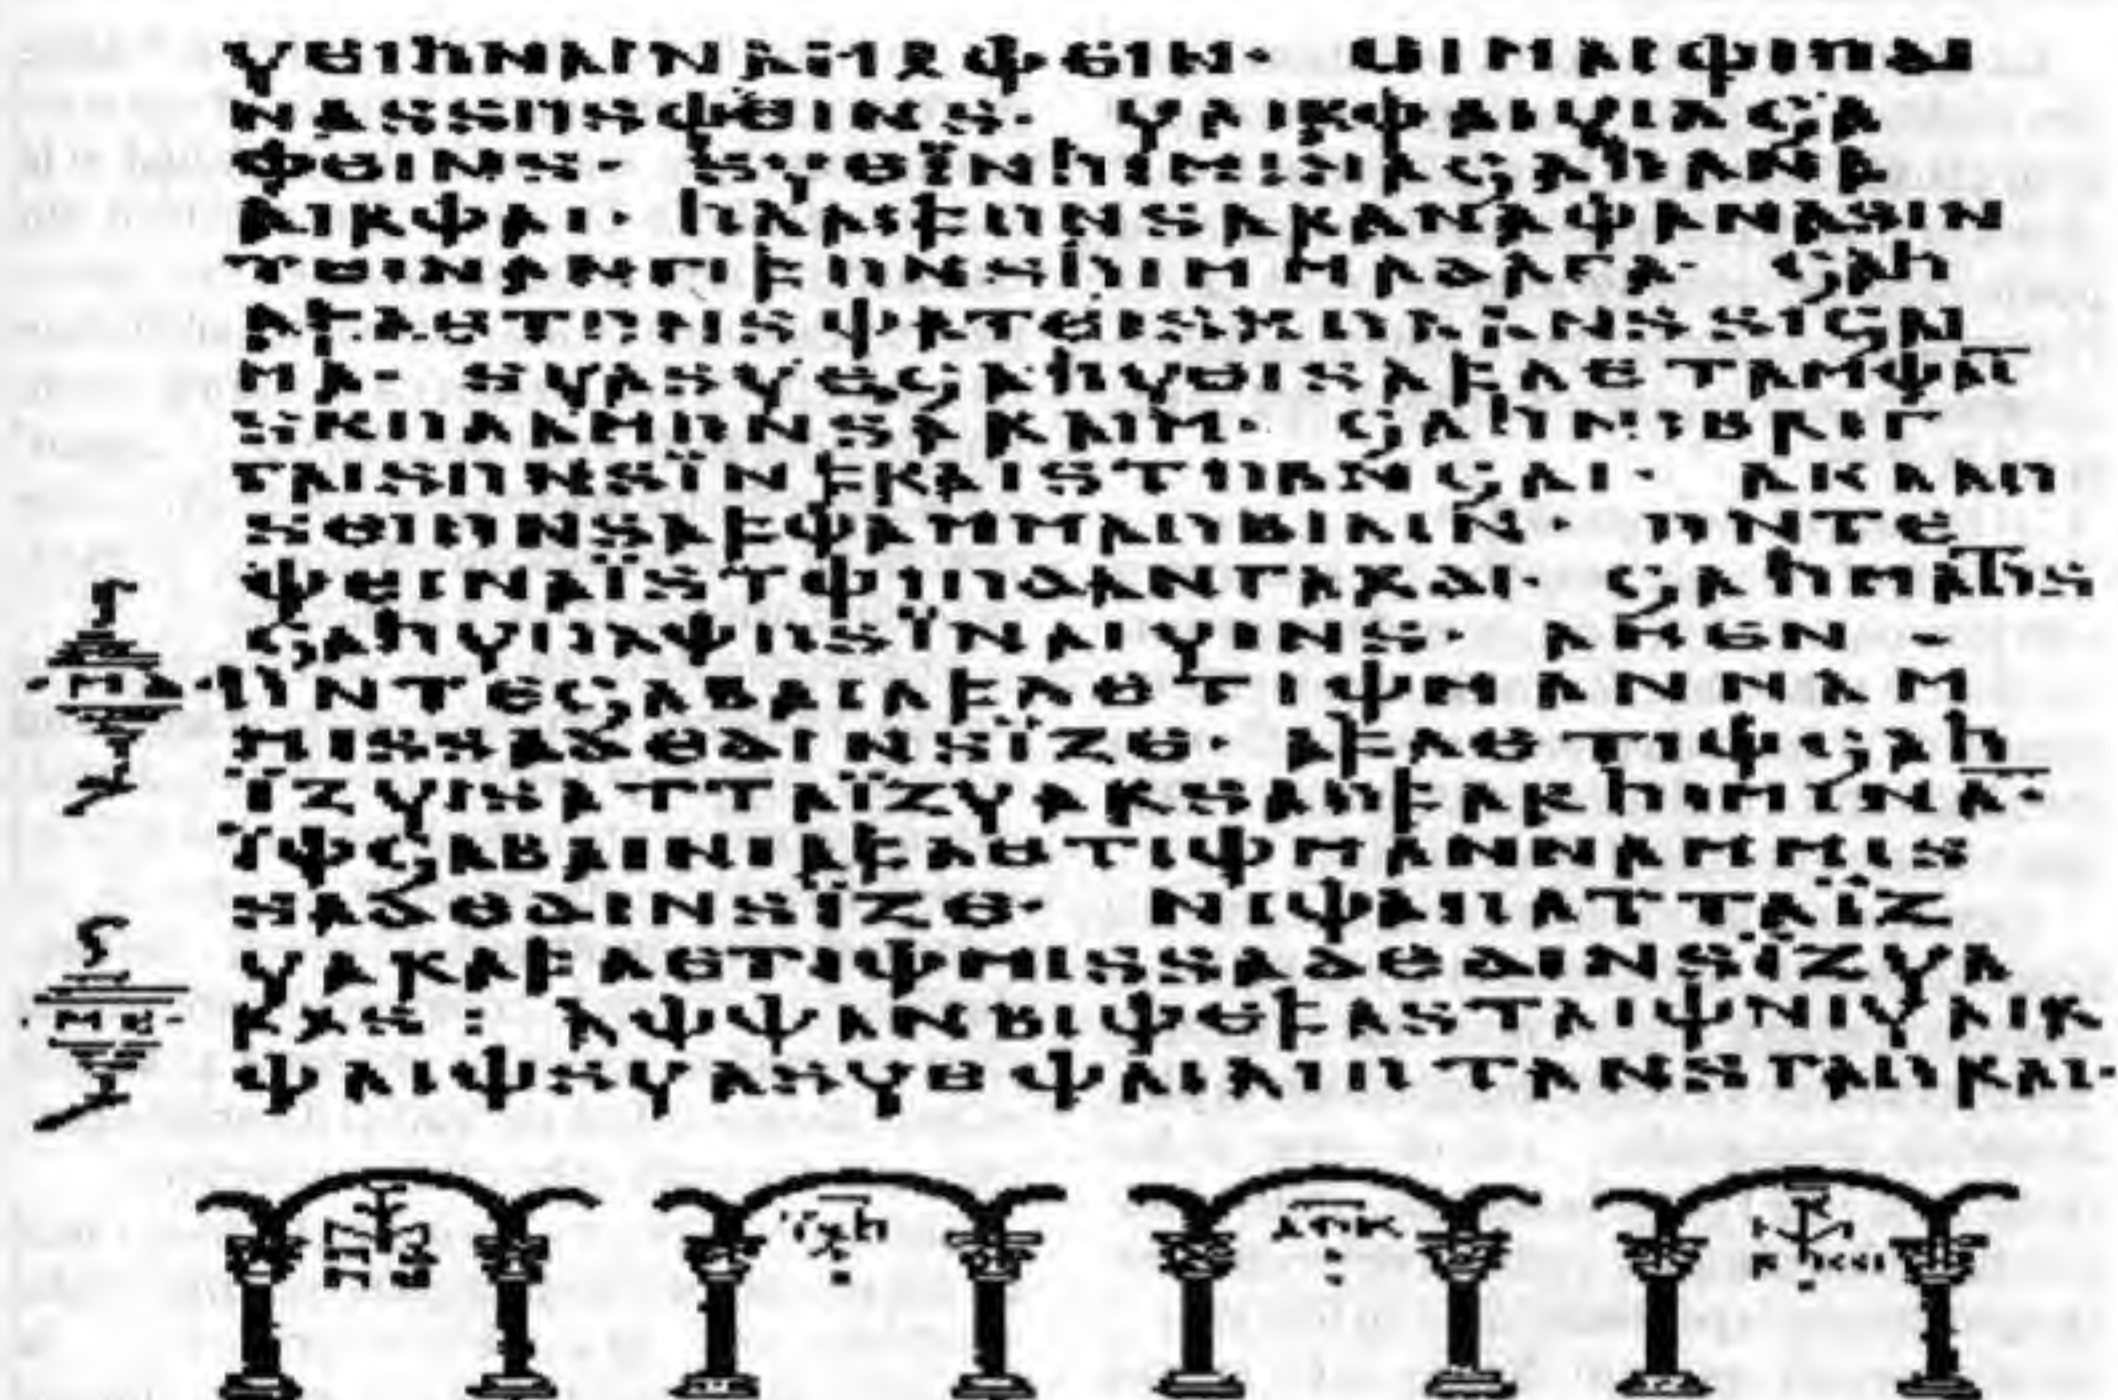 𐍅𐌴𐌹𐌷𐌽𐌰𐌹𐌽𐌰𐌼𐍉𐌸𐌴𐌹𐌽· 𐌵𐌹𐌼𐌰𐌹𐌸𐌹𐌿𐌳𐌹
𐌽𐌰𐍃𐍃𐌿𐍃𐌸𐌴𐌹𐌽𐍃· 𐍅𐌰𐌹𐍂𐌸𐌰𐌹𐍅𐌹𐌻𐌾𐌰
𐌸𐌴𐌹𐌽𐍃· 𐍃𐍅𐌴𐌹̈𐌽𐌷𐌹𐌼𐌹𐌽𐌰𐌾𐌰𐌷𐌰𐌽𐌰
𐌰𐌹𐍂𐌸𐌰𐌹· 𐌷𐌻𐌰𐌹𐍆𐌿𐌽𐍃𐌰𐍂𐌰𐌽𐌰𐌸𐌰𐌽𐌰𐍃𐌹𐌽
𐍄𐌴𐌹𐌽𐌰𐌽𐌲𐌹𐍆𐌿𐌽𐍃𐌷𐌹𐌼𐌼𐌰𐌳𐌰𐌲𐌰· 𐌾𐌰𐌷
𐌰𐍆𐌻𐌴𐍄𐌿𐌽𐍃𐌸𐌰𐍄𐌴𐌹𐍃𐌺𐌿𐌻𐌰𐌽𐍃𐍃𐌹𐌾𐌰𐌹
𐌼𐌰· 𐍃𐍅𐌰𐍃𐍅𐌴𐌾𐌰𐌷𐍅𐌴𐌹𐍃𐌰𐍆𐌻𐌴𐍄𐌰𐌼𐌸𐌰𐌹̅
𐍃𐌺𐌿𐌻𐌰𐌼𐌿𐌽𐍃𐌰𐍂𐌰𐌹𐌼· 𐌾𐌰𐌷𐌽𐌹𐌱𐍂𐌹𐌲
𐌲𐌰𐌹𐍃𐌿𐌽𐍃𐌹̈𐌽𐍆𐍂𐌰𐌹𐍃𐍄𐌿𐌱𐌽𐌾𐌰𐌹· 𐌰𐌺𐌻𐌰𐌿
𐍃𐌴𐌹𐌿𐌽𐍃𐌰𐍆𐌸𐌰𐌼𐌼𐌰𐌿𐌱𐌹𐌻𐌹𐌽· 𐌿𐌽𐍄𐌴
𐌸𐌴𐌹𐌽𐌰𐌹̈𐍃𐍄𐌸𐌹𐌿𐌳𐌰𐌽𐌲𐌰𐍂𐌳𐌹· 𐌾𐌰𐌷𐌼𐌰𐌷𐍄𐍃
𐌾𐌰𐌷𐍅𐌿𐌻𐌸𐌿𐍃𐌹̈𐌽𐌰𐌹𐍅𐌹𐌽𐍃· 𐌰𐌼𐌴𐌽 ·
𐌿𐌽𐍄𐌴𐌾𐌰𐌱𐌰𐌹𐌰𐍆𐌻𐌴𐍄𐌹𐌸𐌼𐌰𐌽𐌽𐌰𐌼
𐌼𐌹𐍃𐍃𐌰𐌳𐌴𐌳𐌹𐌽𐍃𐌹̈𐌶𐌴· 𐌰𐍆𐌻𐌴𐍄𐌹𐌸𐌾𐌰𐌷
𐌹̈𐌶𐍅𐌹𐍃𐌰𐍄𐍄𐌰𐌹̈𐌶𐍅𐌰𐍂𐍃𐌰𐌿𐍆𐌰𐍂𐌷𐌹𐌼𐌹𐌽𐌰̅·
𐌹̈𐌸𐌾𐌰𐌱𐌰𐌹𐌽𐌹𐌰𐍆𐌻𐌴𐍄𐌹𐌸𐌼𐌰𐌽𐌽𐌰𐌼𐌼𐌹𐍃
𐍃𐌰𐌳𐌴𐌳𐌹𐌽𐍃𐌹̈𐌶𐌴· 𐌽𐌹𐌸𐌰𐌿𐌰𐍄𐍄𐌰𐌹̈𐌶
𐍅𐌰𐍂𐌰𐍆𐌻𐌴𐍄𐌹𐌸𐌼𐌹𐍃𐍃𐌰𐌳𐌴𐌳𐌹𐌽𐍃𐌹̈𐌶𐍅𐌰
𐍂𐍉𐍃: 𐌰𐌸𐌸𐌰𐌽𐌱𐌹𐌸𐌴𐍆𐌰𐍃𐍄𐌰𐌹𐌸𐌽𐌹𐍅𐌰𐌹𐍂
𐌸𐌰𐌹𐌸𐍃𐍅𐌰𐍃𐍅𐌴𐌸𐌰𐌹𐌻𐌹𐌿𐍄𐌰𐌽𐍃𐌲𐌰𐌿𐍂𐌰𐌹·